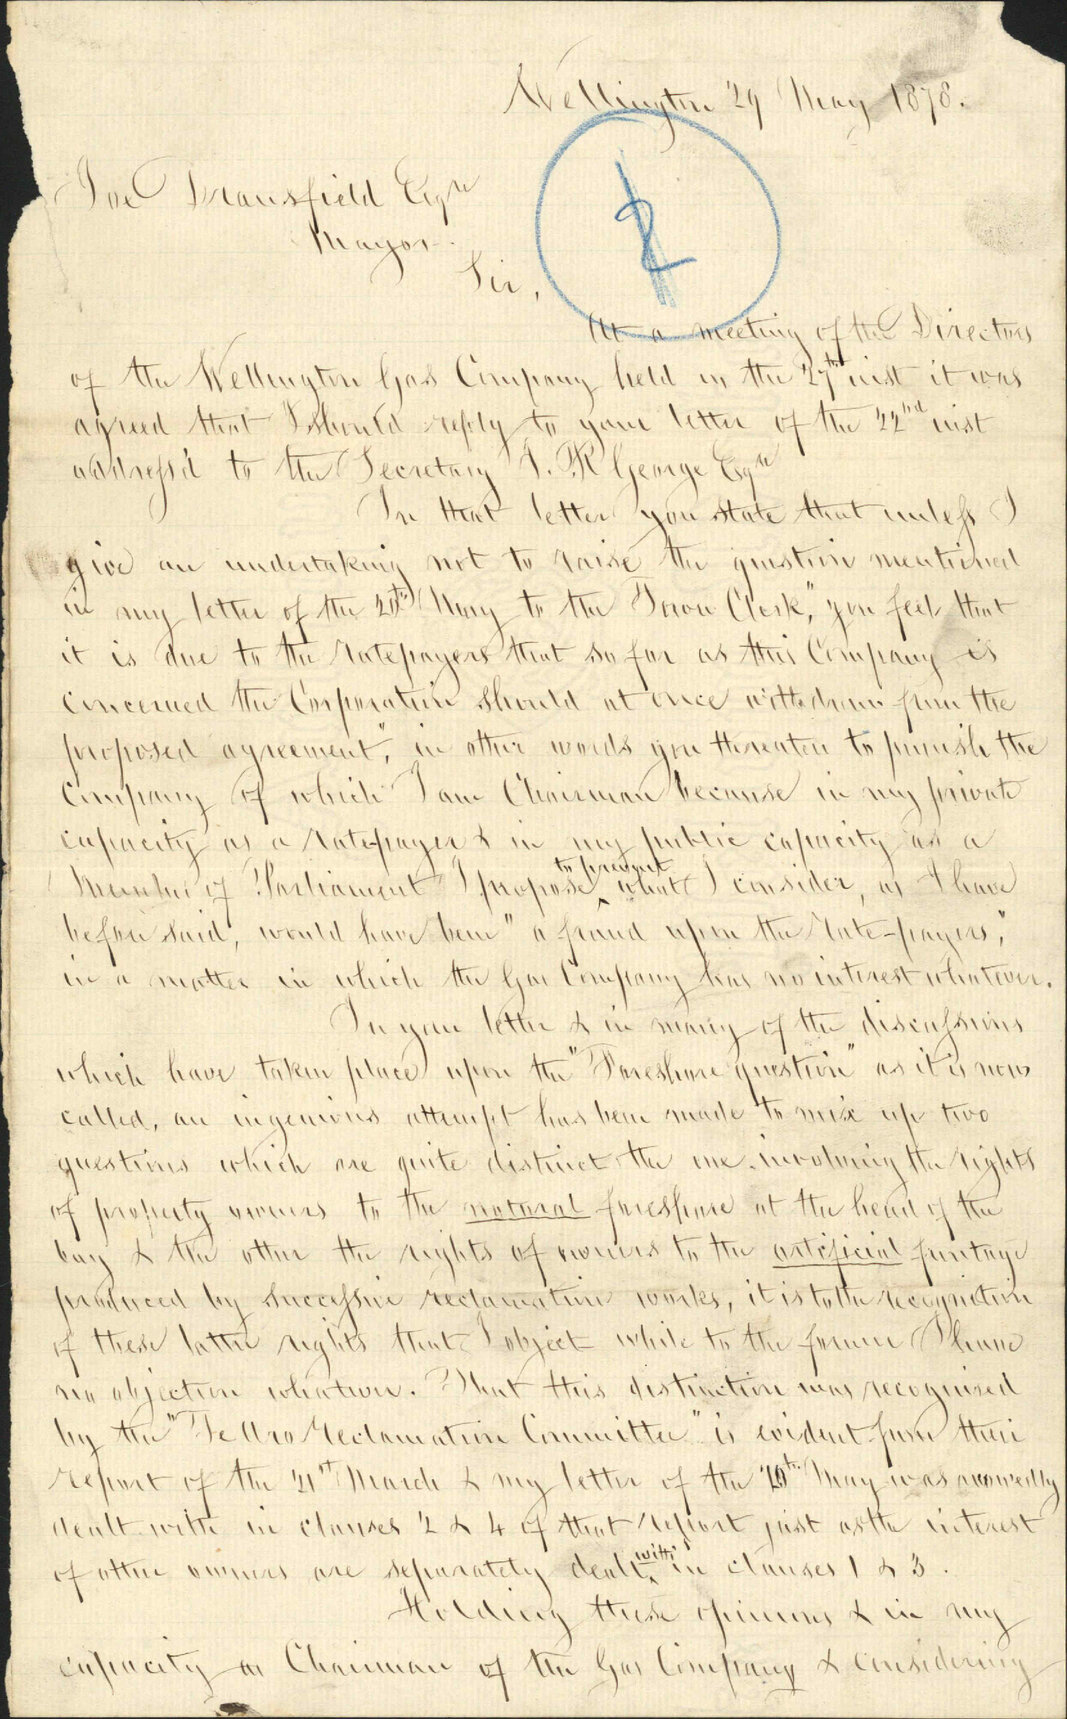 Wellington 29 May 1878.
2
Joe Dransfield Esqre
Mayor.
Sir,
At a meeting of the Directors
of the Wellington Gas Company held on the 27th inst it was
agreed that I should reply to your letter of the 22nd inst
address'd to the Secretary J. R George Esqre
In that letter you state that unless I
give an undertaking not to raise the question mentioned
in my letter of the 20th May to the Town Clerk," you feel that
it is due to the ratepayers that so far as this Company is
concerned the Corporation should at once withdraw from the
proposed agreement", in other words you threaten to punish the
Company of which I am Chairman because in my private
capacity as a rate-payer & in my public capacity as a
Member of Parliament I propose to prevent what I consider, as I have
before said, would have been "a fraud upon the rate-payers,"
in a matter in which the Gas Company has no interest whatever.
In your letter & in many of the discussions
which have taken place upon the "Foreshore question" as it is now
called, an ingenious attempt has been made to mix up two
questions which are quite distinct the one involving the rights
of property owners to the natural foreshore at the head of the
bay & the other the rights of owners to the artificial frontage
produced by successive reclamation works, it is to the recognition
of these latter rights that I object while to the former I have
no objection whatever. That this distinction was recognised
by the "Te Aro Reclamation Committee" is evident from their
report of the 21st March & my letter of the 20th May was avowedly
dealt with in clauses 2 & 4 of that report just as the interest
of other owners are separately dealt with in clauses 1 & 3.
Holding these opinions & in my
capacity as Chairman of the Gas Company & considering